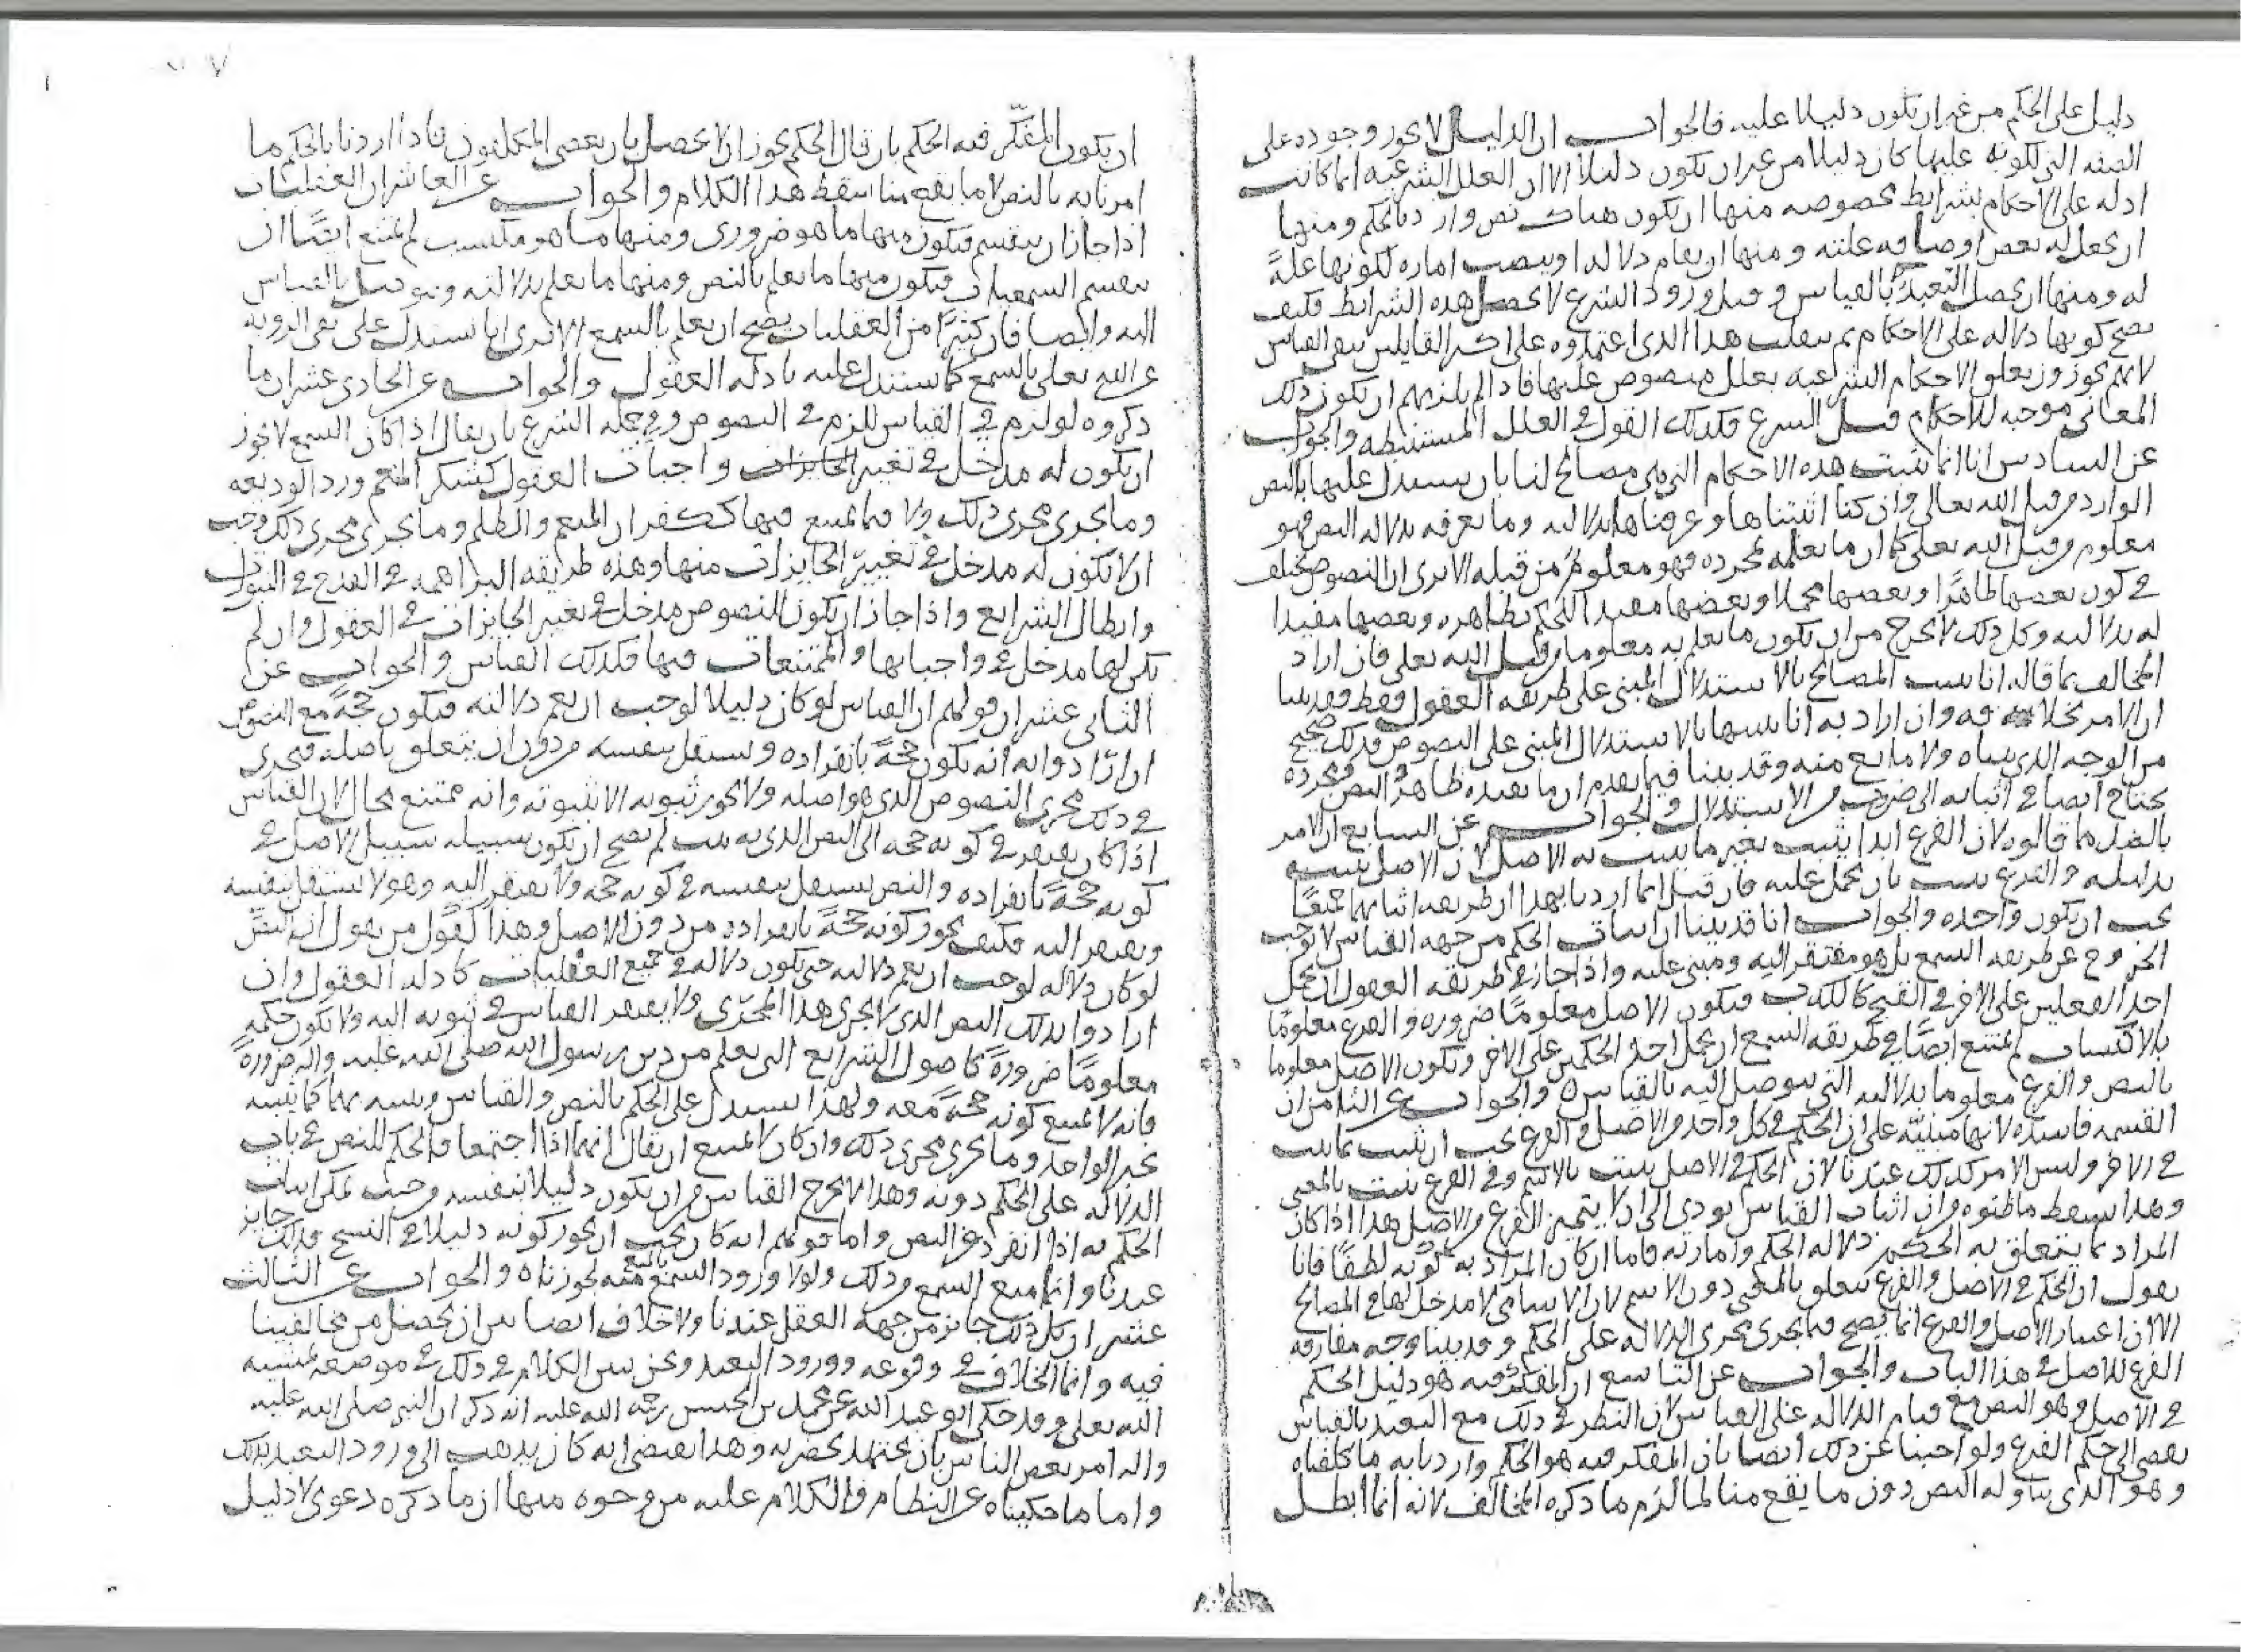 دليل على الحكم من غير ان يكون دليلا عليه فالجواب ان الدليل لا يجوز وجوده على
الصفه التي لكونه عليها كان دليلا من غير ان يكون دليلا الا ان العلل الشرعيه انما كانت
ادله على الاحكام بشرايط مخصوصه منها ان يكون هناك نص وارد بالحكم ومنها
ان يجعل له بعض اوصافه علته ومنها ان يقام دلاله او ينصب اماره لكونها علةً
له ومنها ان يحصل التعبدُ بالقياس وقبل ورود الشرع لا يحصل هذه الشرايط فكيف
يصح كونها دلاله على الاحكام ثم ينقلب هذا الذي اعتمدوه على اكثر القايلين بنفي القياس
لانهم يجوزون تعلق الاحكام الشرعيه بعلل منصوص عليها فاذا لم يلزمهم ان يكون ذلك
المعاني موجبه للاحكام قبل الشرع فكذلك القول في العلل المستنبطه والجواب
عن السادس انا انما نثبت هذه الاحكام التي هي مصالح لنا بان نستدل عليها بالنص
الوارد من قبل الله تعالى وان كنا اثبتناها وعرفناها بدلالته وما نعرفه بدلاله النص فهو
معلوم من قبل الله تعلى كما ان ما نعلمه بمجرده فهو معلوم من قبله الا ترى ان النصوص تختلف
في كون بعضها ظاهرًا وبعضها مجملا وبعضها مفيدا للحكم بظاهره وبعضها مفيدا
له بدلالته وكل ذلك لا يخرج من ان يكون ما نعلم به معلوما من قبل الله تعلى فان اراد
المخالف بما قاله انا نثبت المصالح بالاستدلال المبنى على طريقه العقول فقط فقد بينا
ان الامر بخلافه وان اراد به انا نثبتها بالاستدلال المبنى على النصوص فذلك صحيح
من الوجه الذي بيناه ولا مانع منه وقد بينا فيما تقدم ان ما يفيده ظاهر النص ومجرده
يحتاج ايضا في اثباته الى ضرب من الاستدلال والجواب عن السابع ان الامر
بالضد مما قالوه لان الفرع ابدا يثبت بغير ما يثبت به الاصل لان الاصل يثبت
بدليله والفرع يثبت بان يحمل عليه فان قيل انما اردنا بهذا ان طريقه اثباتهما جميعًا
يجب ان يكون واحده والجواب انا قد بينا ان اثبات الحكم من جهه القياس لا يوجب
الخروج عن طريقه السمع بل هو مفتقر اليه ومبنى عليه واذا جاز في طريقه العقول ان يحمل
احد الفعلين على الاخر في القبح كالكذب فيكون الاصل معلومًا ضروره والفرع معلومًا
بالاكتساب لم يمتنع ايضًا في طريقه السمع ان يحمل احد الحكمين على الاخر ويكون الاصل معلوما
بالنص والفرع معلوما بدلالته التي يتوصل اليه بالقياس والجواب عن الثامن ان
القسمه فاسده لانها مبنيّه على ان الحكم في كل واحد من الاصل والفرع يجب ان يثبت بما يثبت
في الاخر وليس الامر كذلك عندنا لان الحكم في الاصل يثبت بالاسم وفي الفرع يثبت بالمعنى
وهذا يسقط ما ظنوه من ان اثبات القياس يودى الى ان لا يتميز الفرع من الاصل هذا اذا كان
المراد بما يتعلق به الحكم دلاله الحكم وامارته فاما ان كان المراد به كونه لطفًا فانا
نقول ان الحكم في الاصل والفرع يتعلق بالمعنى دون الاسم لان الاسامي لا مدخل لها في المصالح
الا ان اعتبار الاصل والفرع انما يصح فيما يجرى مجرى الدلاله على الحكم وقد بينا وجه مفارقه
الفرع للاصل في هذا الباب والجواب عن التاسع ان المفكّر فيه هو دليل الحكم
في الاصل وهو النص مع قيام الدلاله على القياس لان النظر في ذلك مع التعبد بالقياس
يفضي الى حكم الفرع ولو اجبنا عن ذلك ايضا بان المفكر فيه هو الحكم واردنا به ما كلفناه
وهو الذي يتناوله النص دون ما يقع منا لما لزم ما ذكره المخالف لانه انما ابطل
ان يكون المفكّر فيه الحكم بان قال الحكم يجوز ان لا يحصل بان يعصى المكلفون فاذا اردنا بالحكم ما
امرنا به بالنص لا ما يقع منا سقط هذا الكلام والجواب عن العاشر ان العقليات
اذا جاز ان ينقسم فيكون منها ما هو ضروري ومنها ما هو مكتسب لم يمتنع ايضًا ان
ينقسم السمعيات فيكون منها ما يعلم بالنص ومنها ما يعلم بدلالته ويتوصل بالقياس
اليه وايضا فان كثيرًا من العقليات يصح ان يعلم بالسمع الا ترى انا نستدل على نفى الرويه
عن الله تعلى بالسمع كما نستدل عليه بادله العقول والجواب عن الحادي عشر ان ما
ذكروه لو لزم في القياس للزم في النصوص وفي جمله الشرع بان يقال اذا كان السمع لا يجوز
ان يكون له مدخل في تغيير واجبات العقول كشكر المنعم ورد الوديعه
وما يجرى مجرى ذلك ولا فيما يمتنع فيها ككفران المنعم والظلم وما يجرى مجرى ذلك وجب
ان لا يكون له مدخل في تغيير الجايزات منها وهذه طريقه البراهمه في القدح في النبوات
وابطال الشرايع واذا جاز ان يكون للنصوص مدخل في تغيير الجايزات في العقول وان لم
يكن لها مدخل في واجباتها والممتنعات فيها فكذلك القياس والجواب عن
الثاني عشر ان قولهم ان القياس لو كان دليلا لوجب ان يعم دلالته فيكون حجةً مع النصوص
ان ارادوا به انه يكون حجةً بانفراده ويستقل بنفسه من دون ان يتعلق باصله فيجرى
في ذلك مجرى النصوص الذي هو اصله ولا يجوز ثبوته الا بثبوته وانه ممتنع محال لان القياس
اذا كان يفتقر في كونه حجه الى النص الذي به يثبت لم يصح ان يكون سبيله سبيل الاصل في
كونه حجةً بانفراده والنص يستقل بنفسه في كونه حجه ولا يفتقر اليه وهو لا يستقل بنفسه
ويفتقر اليه فكيف يجوز كونه حجةً بانفراده من دون الاصل وهذا كقول من يقول ان النص
لو كان دلاله لوجب ان يعم دلالته حتى يكون دلاله في جميع العقليات كادله العقول وان
ارادوا بذلك النص الذي لا يجرى هذا المجرى ولا يفتقر القياس في ثبوته اليه ولا يكون حكمه
معلومًا ضرورةً كاصول الشرايع التي تعلم من دين رسول الله صلى الله عليه واله ضرورةً
فانه لا يمتنع كونه حجةً معه ولهذا يستدل على الحكم بالنص والقياس ويثبته بهما كما يثبته
بخبر الواحد وما يجرى مجرى ذلك وان كان لا يمتنع ان يقال انهما اذا اجتمعا فالحكم للنص في باب
الدلاله على الحكم دونه وهذا لا يخرج القياس من ان يكون دليلا بنفسه وحيث يمكن اثبات
الحكم به اذا انفرد عن النص واما قولهم انه كان يجب ان يجوز كونه دليلا في النسخ فذلك جايز
عندنا وانما منع السمع من ذلك ولولا ورود السمع بالمنع منه لجوزناه والجواب عن الثالث
عشر ان كل ذلك جايز من جهه العقل عندنا ولا خلاف ايضا بين ان يحصل من مخالفينا
فيه وانما الخلاف في وقوعه وورود التعبد ونحن نبين الكلام في ذلك في موضعه بمشيه
الله تعلى وقد حكى ابو عبد الله عن محمد بن الحسن رحمه الله عليه انه ذكر ان النبي صلى الله عليه
واله امر بعض الناس بان يجتهد بحضرته وهذا يقتضى انه كان يذهب الى ورود التعبد بذلك
واما ما حكيناه عن النظام فالكلام عليه من وجوه منها ان ما ذكره دعوى لا دليل